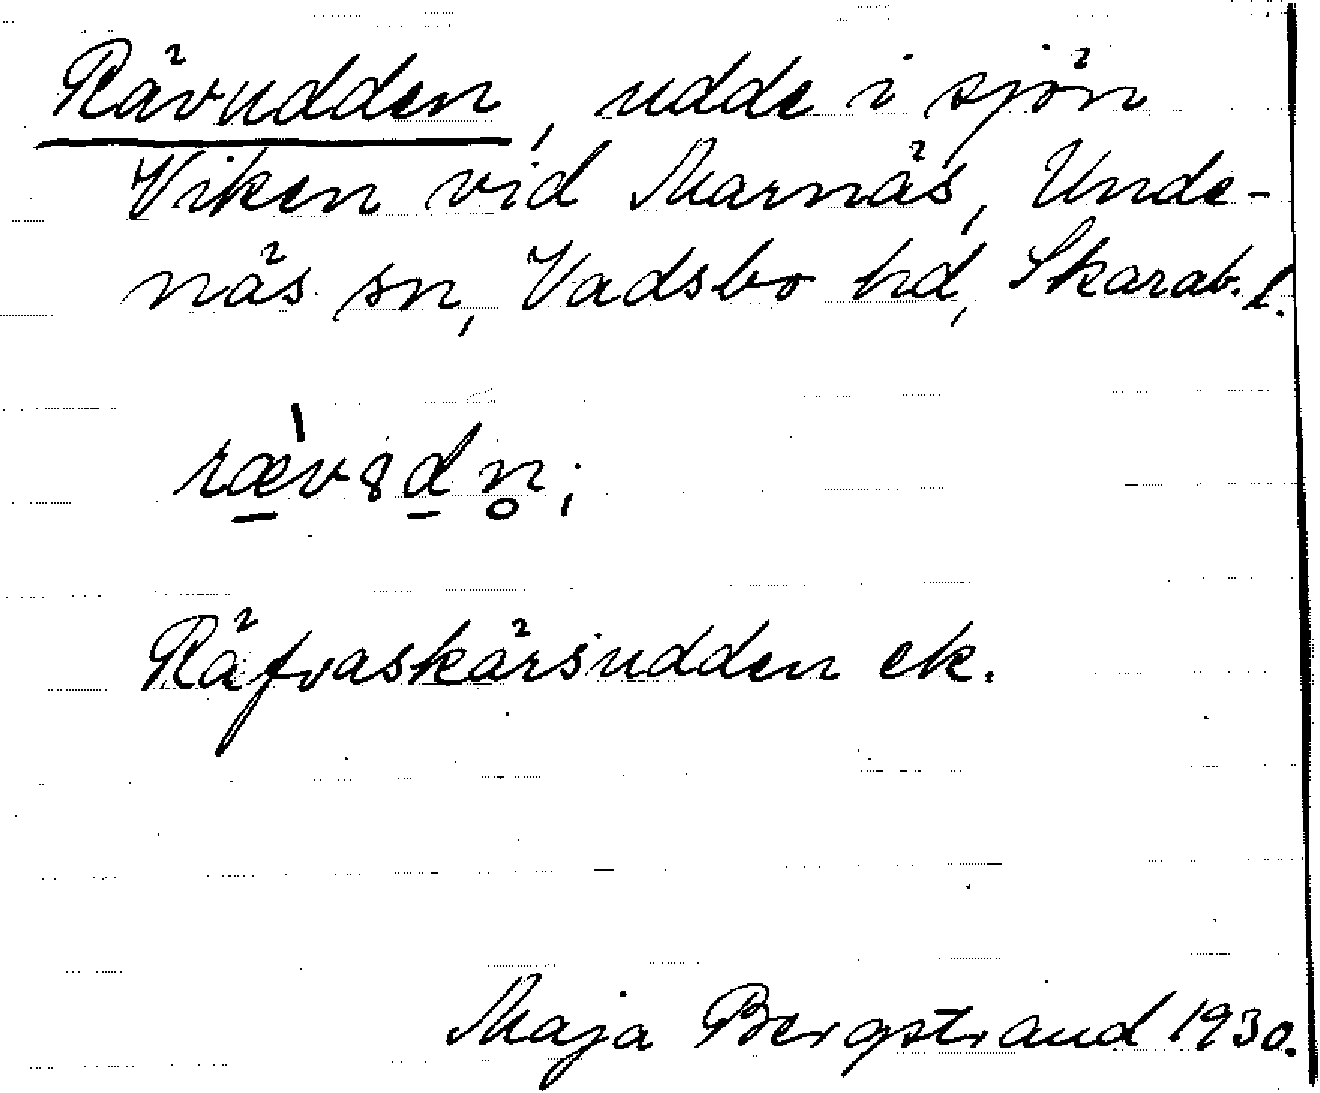 Rävudden, udde i sjön
Viken vid Marnäs, Unde-
näs sn, Vadsbo hd, Skarab. l.
ræ̱̀v8ḏn̥;
Räfvaskärsudden ek.
Maja Bergstrand 1930.